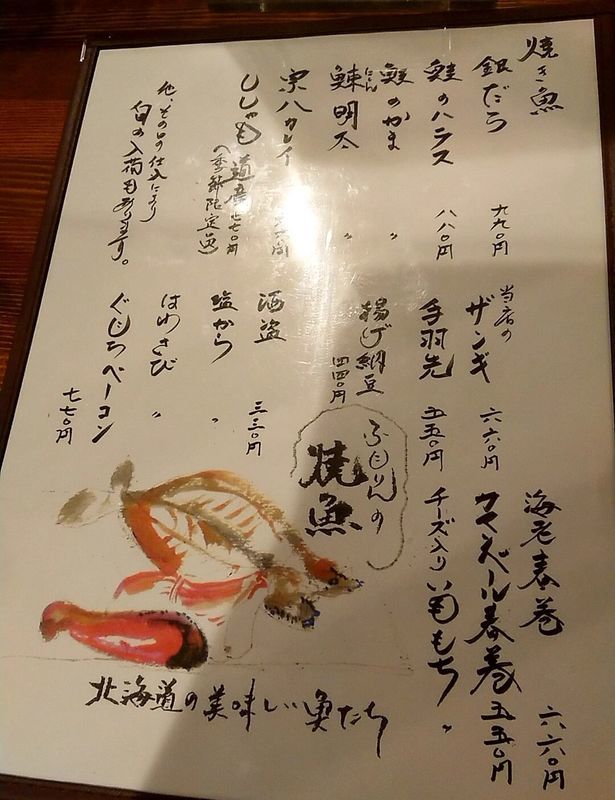 焼き魚
銀だら 九九〇円
鮭のハラス 八八〇円
鮭のかま 〃
鰊明太 〃
にしん
宗八カレイ
ししゃも 道産 七七〇円
(季節限定品)
他、その日の仕込により
旬の入荷もあります。
当店の
ザンギ 六六〇円
手羽先 五五〇円
揚げ納豆 四四〇円
酒盗 三三〇円
塩から 〃
はわさび 〃
ベーコン 七七〇円
海老春巻 六六〇円
カマンベール春巻 五五〇円
チーズ入りいももち 〃
ふじりんの
焼魚
北海道の美味しい魚たち